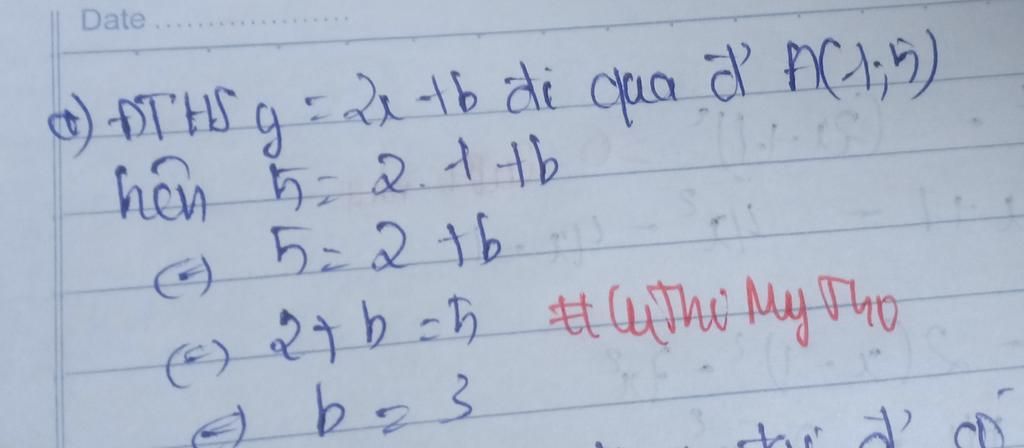 Date
a) ĐTHS y = 2x + b đi qua đ' A(1;5)
nên 5 = 2.1 + b
(=) 5 = 2 + b
(=) 2 + b = 5 #CụThiMyTho
(=) b = 3